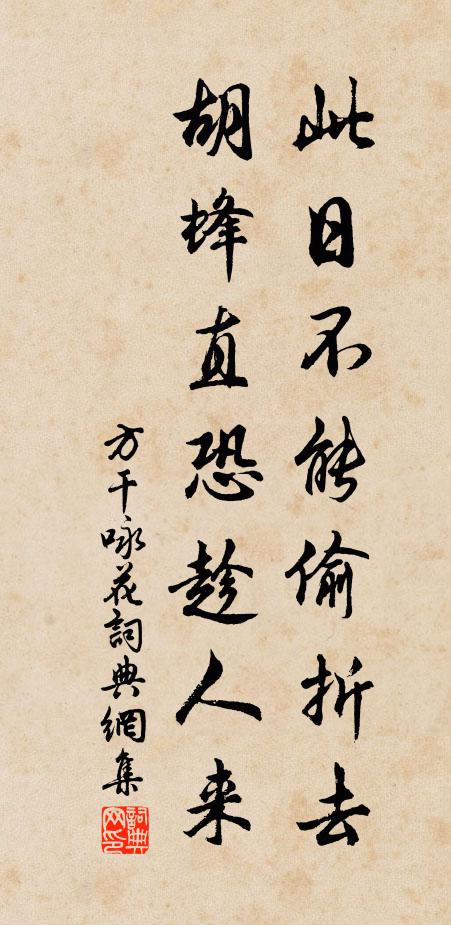 此日不能偷折去
胡蜂直恐趁人来
方干咏花詞典網集
詞典網印